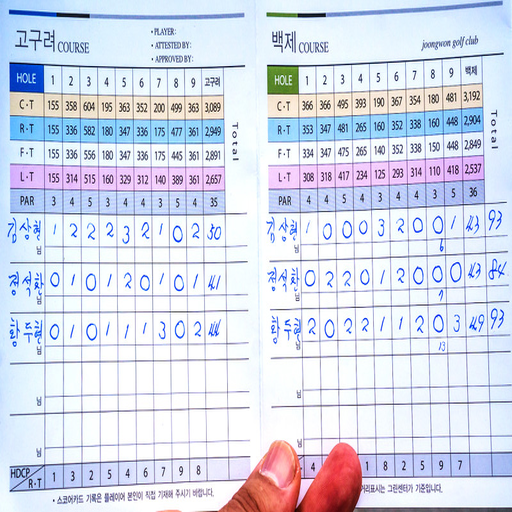 고구려 COURSE
• PLAYER:
• ATTESTED BY:
• APPROVED BY:
HOLE 1 2 3 4 5 6 7 8 9 고구려
C·T 155 358 604 195 363 352 200 499 363 3,089
R·T 155 336 582 180 347 336 175 477 361 2,949
F·T 155 336 556 180 347 336 175 445 361 2,891
L·T 155 314 515 160 329 312 140 389 361 2,657
PAR 3 4 5 3 4 4 3 5 4 35
Total
김상형 1 2 2 2 3 2 1 0 2 50
님
정석환 0 1 0 1 2 0 1 0 1 41
님
황주형 0 1 0 1 1 1 3 0 2 44
님
님
님
HDCP R·T 1 3 2 5 4 6 7 9 8
• 스코어카드 기록은 플레이어 본인이 직접 기재해 주시기 바랍니다.
백제 COURSE
joongwon golf club
HOLE 1 2 3 4 5 6 7 8 9 백제
C·T 366 366 495 393 190 367 354 180 481 3,192
R·T 353 347 481 265 160 352 338 160 448 2,904
F·T 334 347 475 265 140 352 338 150 448 2,849
L·T 308 318 417 234 125 293 314 110 418 2,537
PAR 4 4 5 4 3 4 4 3 5 36
Total
김상형 1 0 0 0 3 2 0 0 1 43 93
님 6
정석환 0 2 2 0 1 2 0 0 0 43 84
님 7
황주형 2 0 2 2 1 1 2 0 3 49 93
님 13
님
님
4 1 8 2 5 9 7
거리표시는 그린센터가 기준입니다.